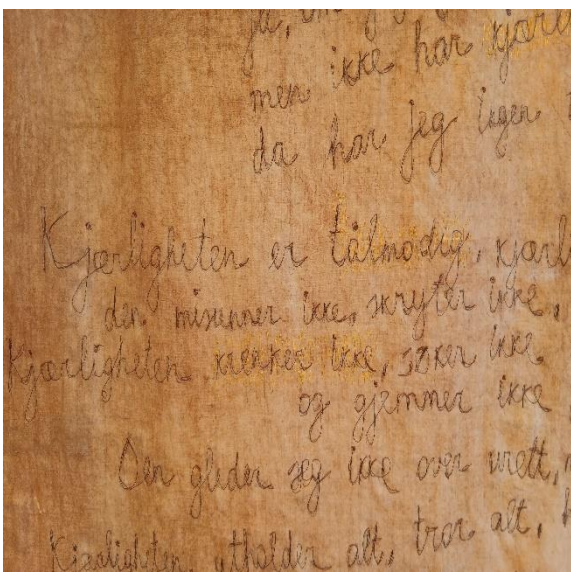 ja, om jeg
men ikke har kjærl
da har jeg ingen
Kjærligheten er tålmodig, kjærl
den misunner ikke, skryter ikke,
Kjærligheten krenker ikke, søker ikke
og gjemmer ikke
Den gleder seg ikke over urett,
Kjærligheten utholder alt, tror alt,